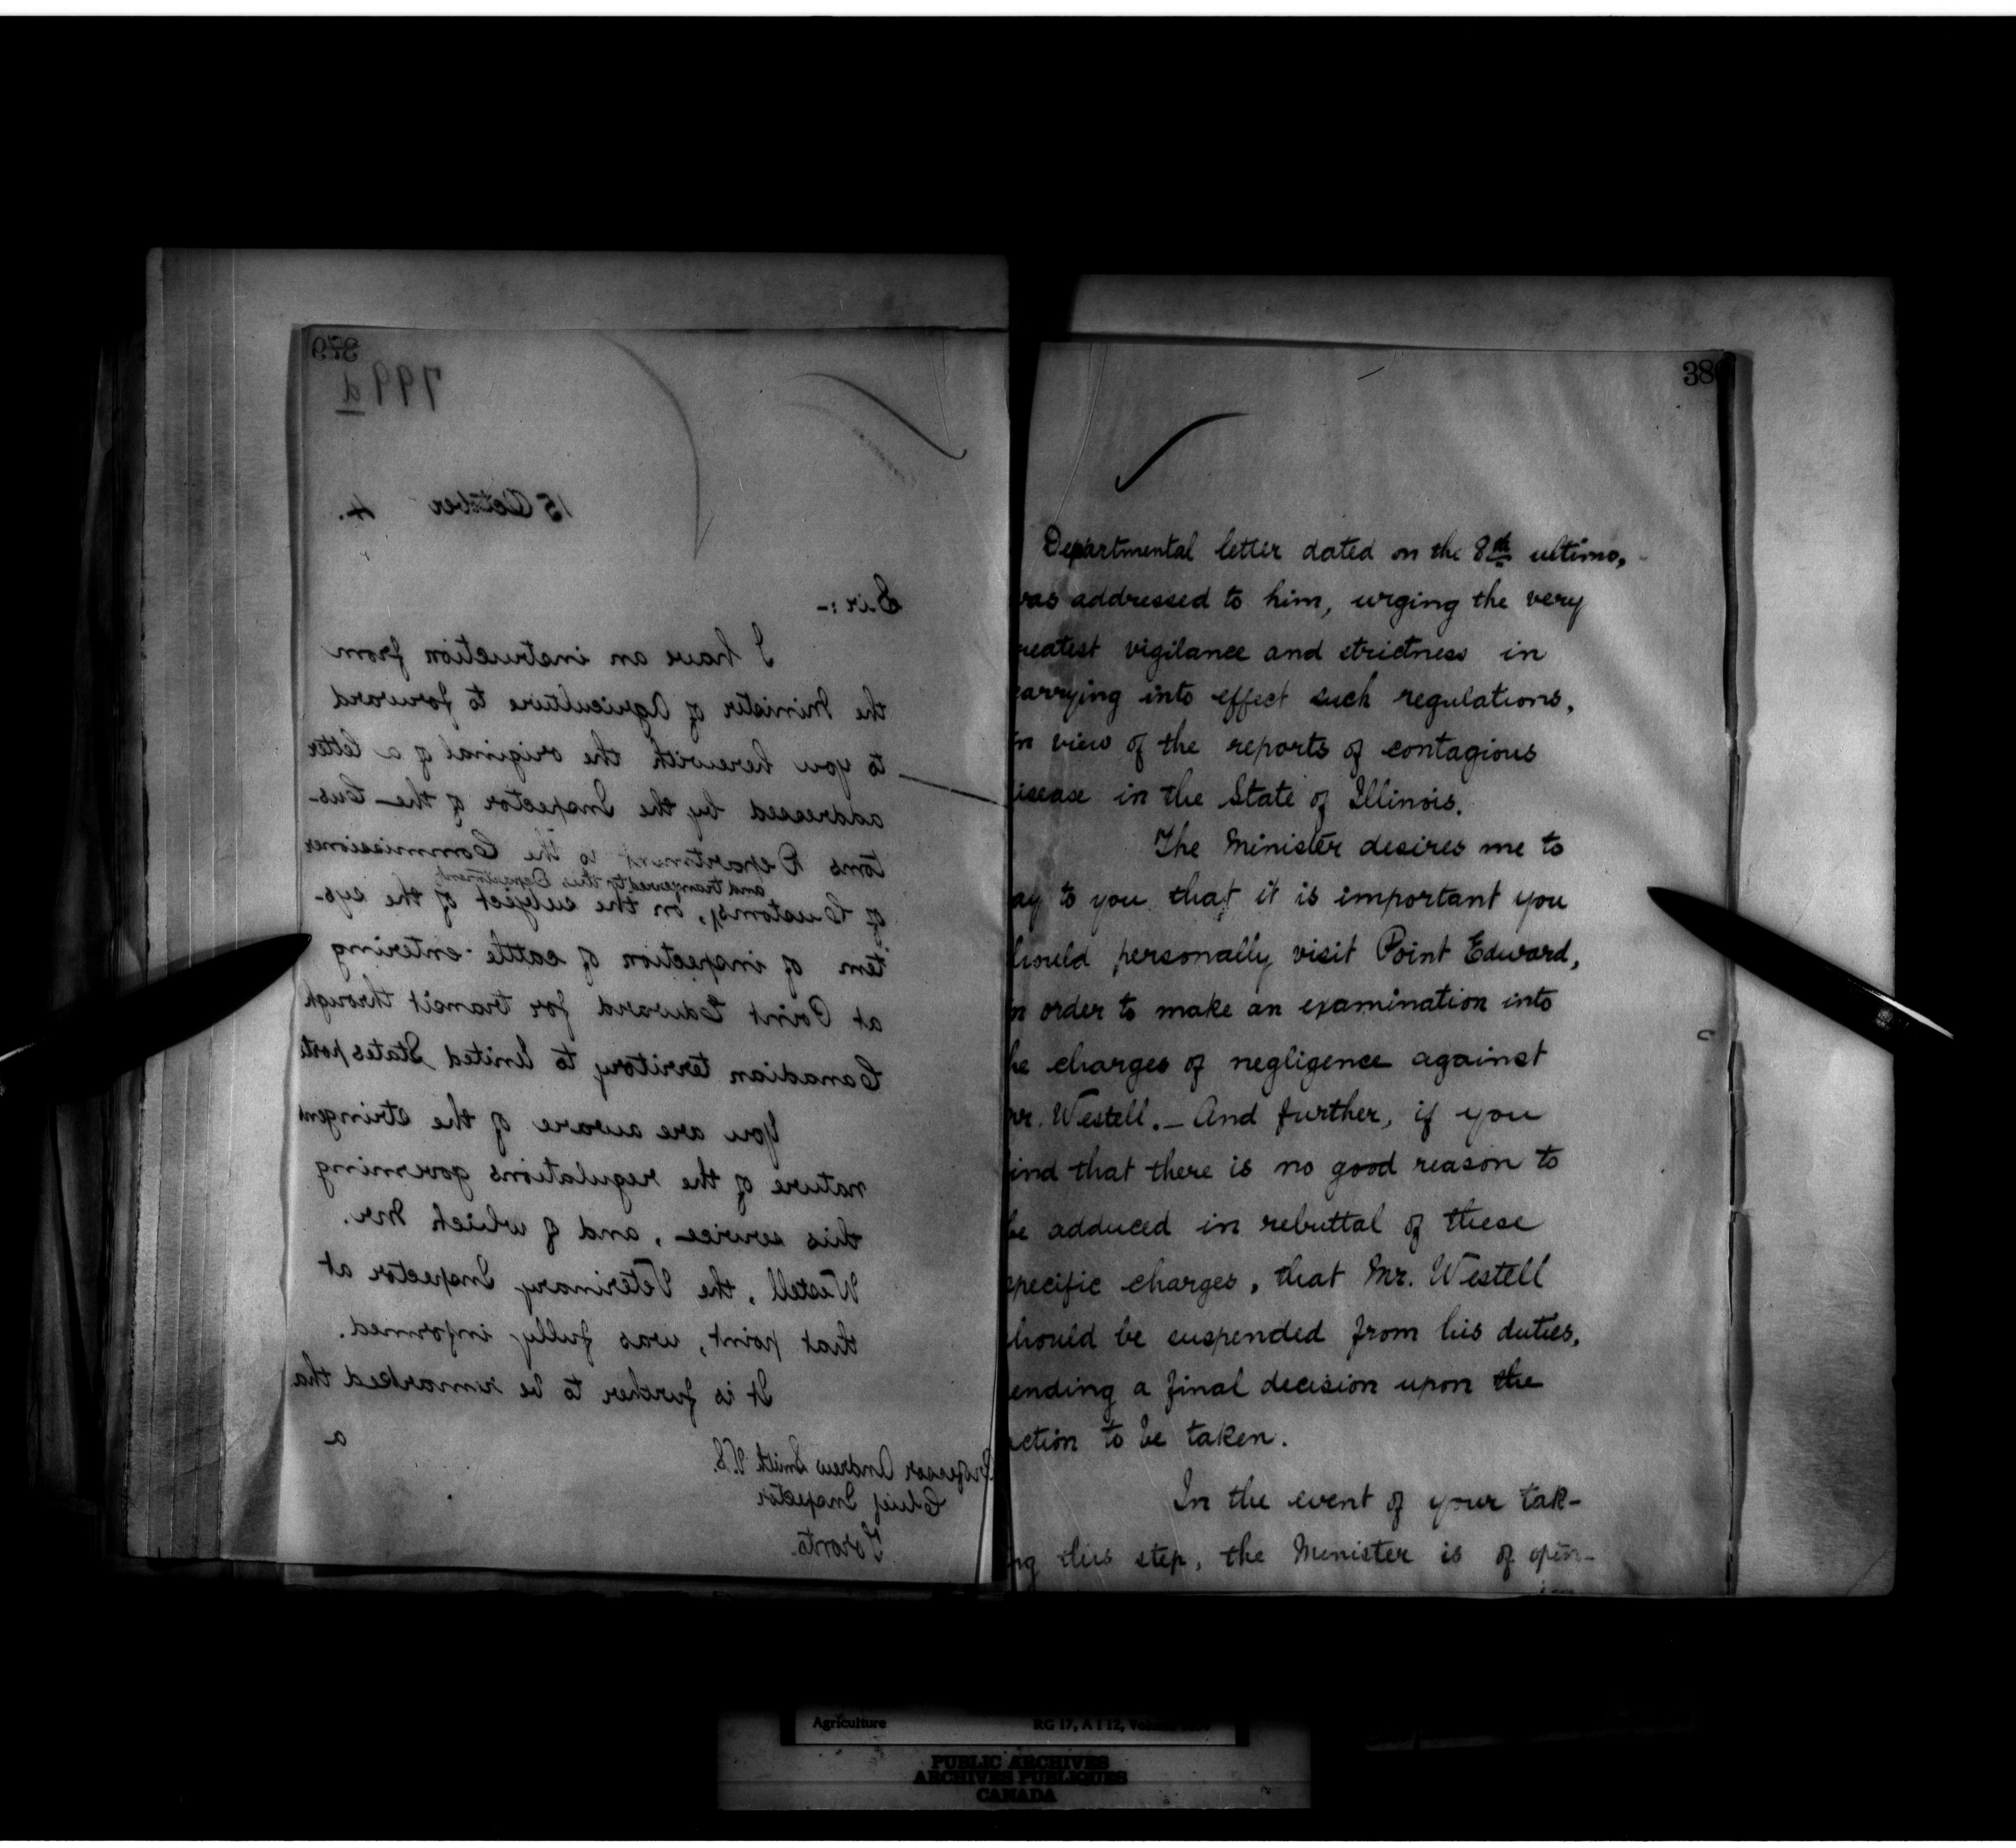 379
799 d
15 October 4.
Sir:-
I have an instruction from
the Minister of Agriculture to forward
to you herewith the original of a letter
addressed by the Inspector of the Cus-
toms Department to the Commissioner
and transferred to this Department,
of Customs, on the subject of the sys-
tem of inspection of cattle entering
at Point Edward for transit through
Canadian territory to United States ports
You are aware of the stringent
nature of the regulations governing
this service, and of which Mr.
Westell, the Veterinary Inspector at
that point, was fully informed.
It is further to be remarked tha
a
Professor Andrew Smith V.S.
Chief Inspector
Toronto.
38
Departmental letter dated on the 8th ultimo,
was addressed to him, urging the very
reatest vigilance and strictness in
carrying into effect such regulations,
in view of the reports of contagious
isease in the State of Illinois.
The Minister desires me to
ay to you that it is important you
hould personally visit Point Edward,
n order to make an examination into
he charges of negligence against
Mr. Westell. - And further, if you
ind that there is no good reason to
be adduced in rebuttal of these
specific charges, that Mr. Westell
should be suspended from his duties,
ending a final decision upon the
action to be taken.
In the event of your tak-
ng this step, the Minister is of opin-
ion
Agriculture RG 17, A I 12,
PUBLIC ARCHIVES
ARCHIVES PUBLIQUES
CANADA